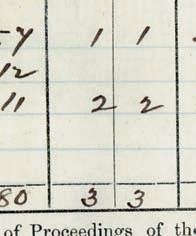 7 1 1
12
11 2 2
80 3 3
of Proceedings of th